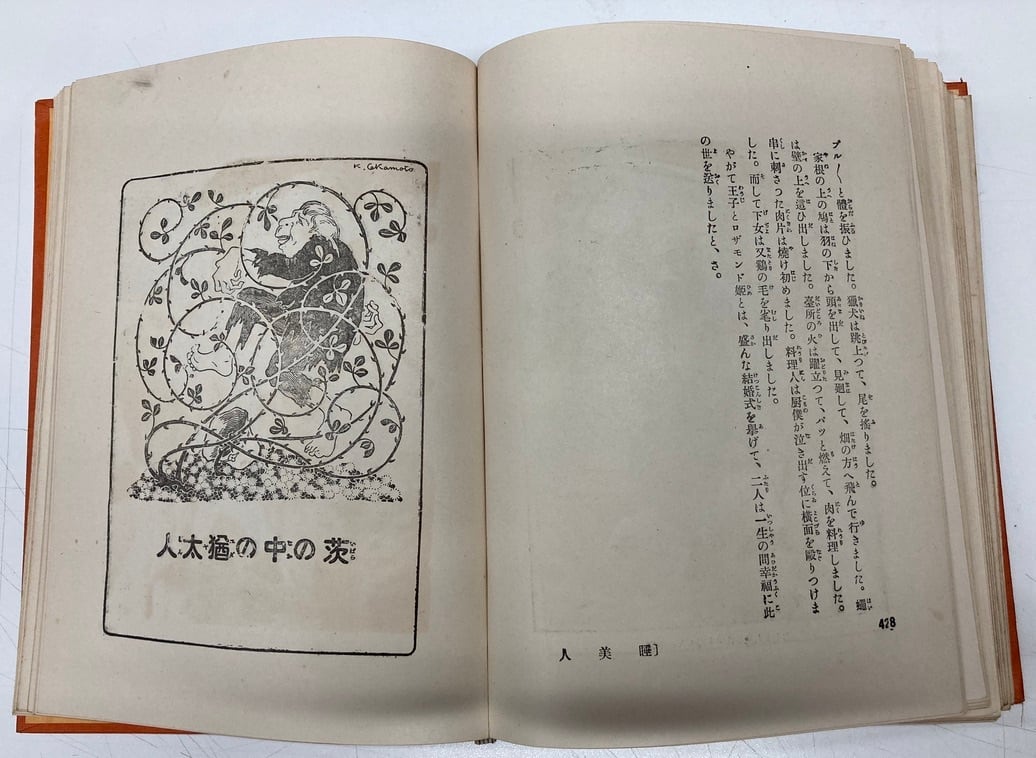 ブル〳〵と體を振ひました。獵犬は跳上つて、尾を搖りました。
家根の上の鳩は羽の下から頭を出して、見廻して、畑の方へ飛んで行きました。蠅
は壁の上を這ひ出しました。臺所の火は躍立つて、パッと燃えて、肉を料理しました。
串に刺さつた肉片は燒け初めました。料理人は厨僕が泣き出す位に橫面を毆りつけま
した。而して下女は又鷄の毛を毟り出しました。
やがて王子とロザモンド姬とは、盛んな結婚式を擧げて、二人は一生の間幸福に此
の世を送りましたと、さ。
428
人美睡
K. Okamoto
人太猶の中の茨